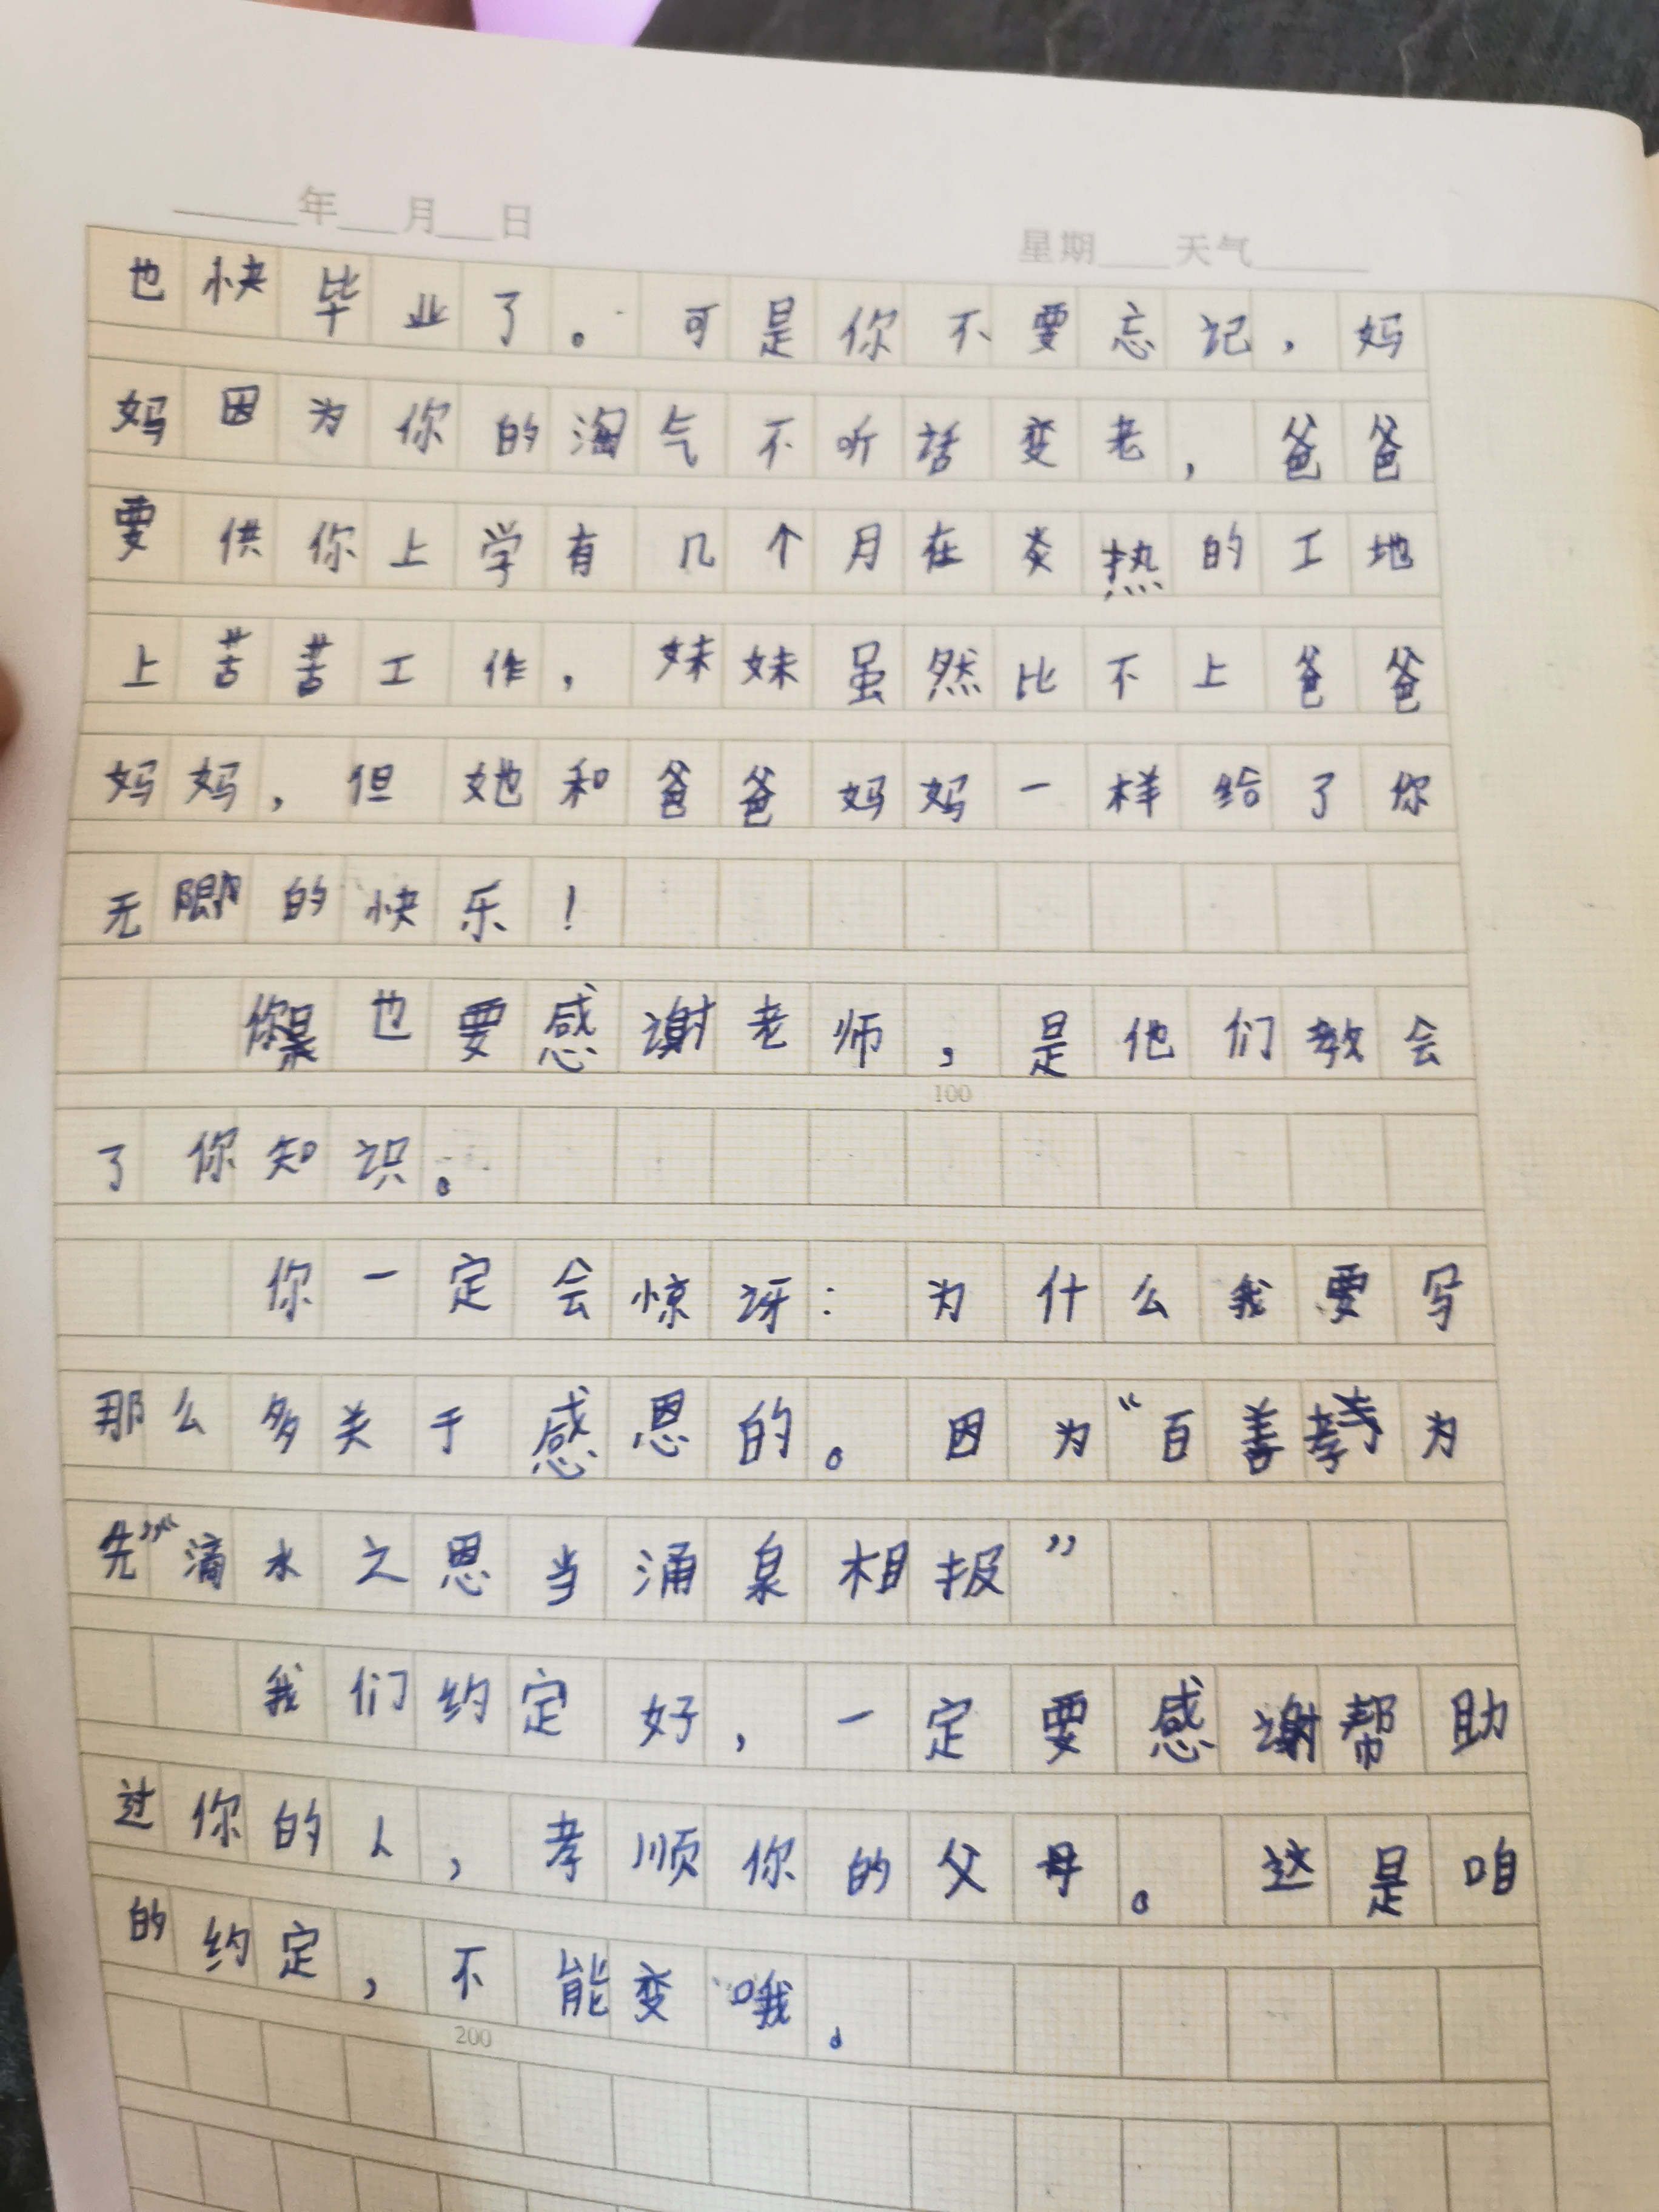 ____年__月__日 星期__天气____
也快毕业了。可是你不要忘记，妈
妈因为你的淘气不听话变老，爸爸
要供你上学有几个月在炎热的工地
上苦苦工作，妹妹虽然比不上爸爸
妈妈，但她和爸爸妈妈一样给了你
无限的快乐！
你也要感谢老师，是他们教会
100
了你知识。
你一定会惊讶：为什么我要写
那么多关于感恩的。因为“百善孝为
先”“滴水之恩当涌泉相报”
我们约定好，一定要感谢帮助
过你的人，孝顺你的父母。这是咱
的约定，不能变哦。
200